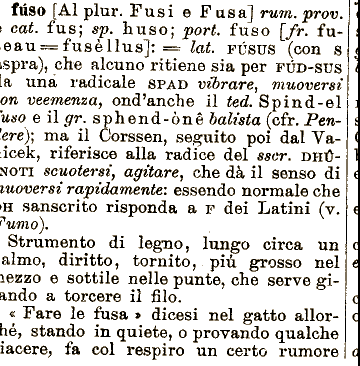 fúso [Al plur. Fusi e Fusa] rum. prov.
e cat. fus; sp. huso; port. fuso [fr. fu-
seau=fusèllus]: = lat. FÚSUS (con s
aspra), che alcuno ritiene sia per FÚD-SUS
da una radicale SPAD vibrare, muoversi
con veemenza, ond'anche il ted. Spind-el
fuso e il gr. sphend-ònê balista (cfr. Pen-
dere); ma il Corssen, seguito poi dal Va-
nicek, riferisce alla radice del sscr. DHÛ-
NOTI scuotersi, agitare, che dà il senso di
muoversi rapidamente: essendo normale che
DH sanscrito risponda a F dei Latini (v.
Fumo).
Strumento di legno, lungo circa un
palmo, diritto, tornito, più grosso nel
mezzo e sottile nelle punte, che serve gi-
rando a torcere il filo.
« Fare le fusa » dicesi nel gatto allor-
ché, stando in quiete, o provando qualche
piacere, fa col respiro un certo rumore